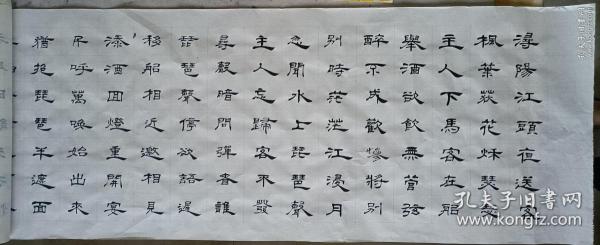 潯陽江頭夜送客
楓葉荻花秋瑟瑟
主人下馬客在船
舉酒欲飲無管弦
醉不成歡慘將別
別時茫茫江浸月
忽聞水上琵琶聲
主人忘歸客不發
尋聲暗問彈者誰
琵琶聲停欲語遲
移船相近邀相見
添酒回燈重開宴
千呼萬喚始出來
猶抱琵琶半遮面
孔夫子旧书网
book.kongfz.com